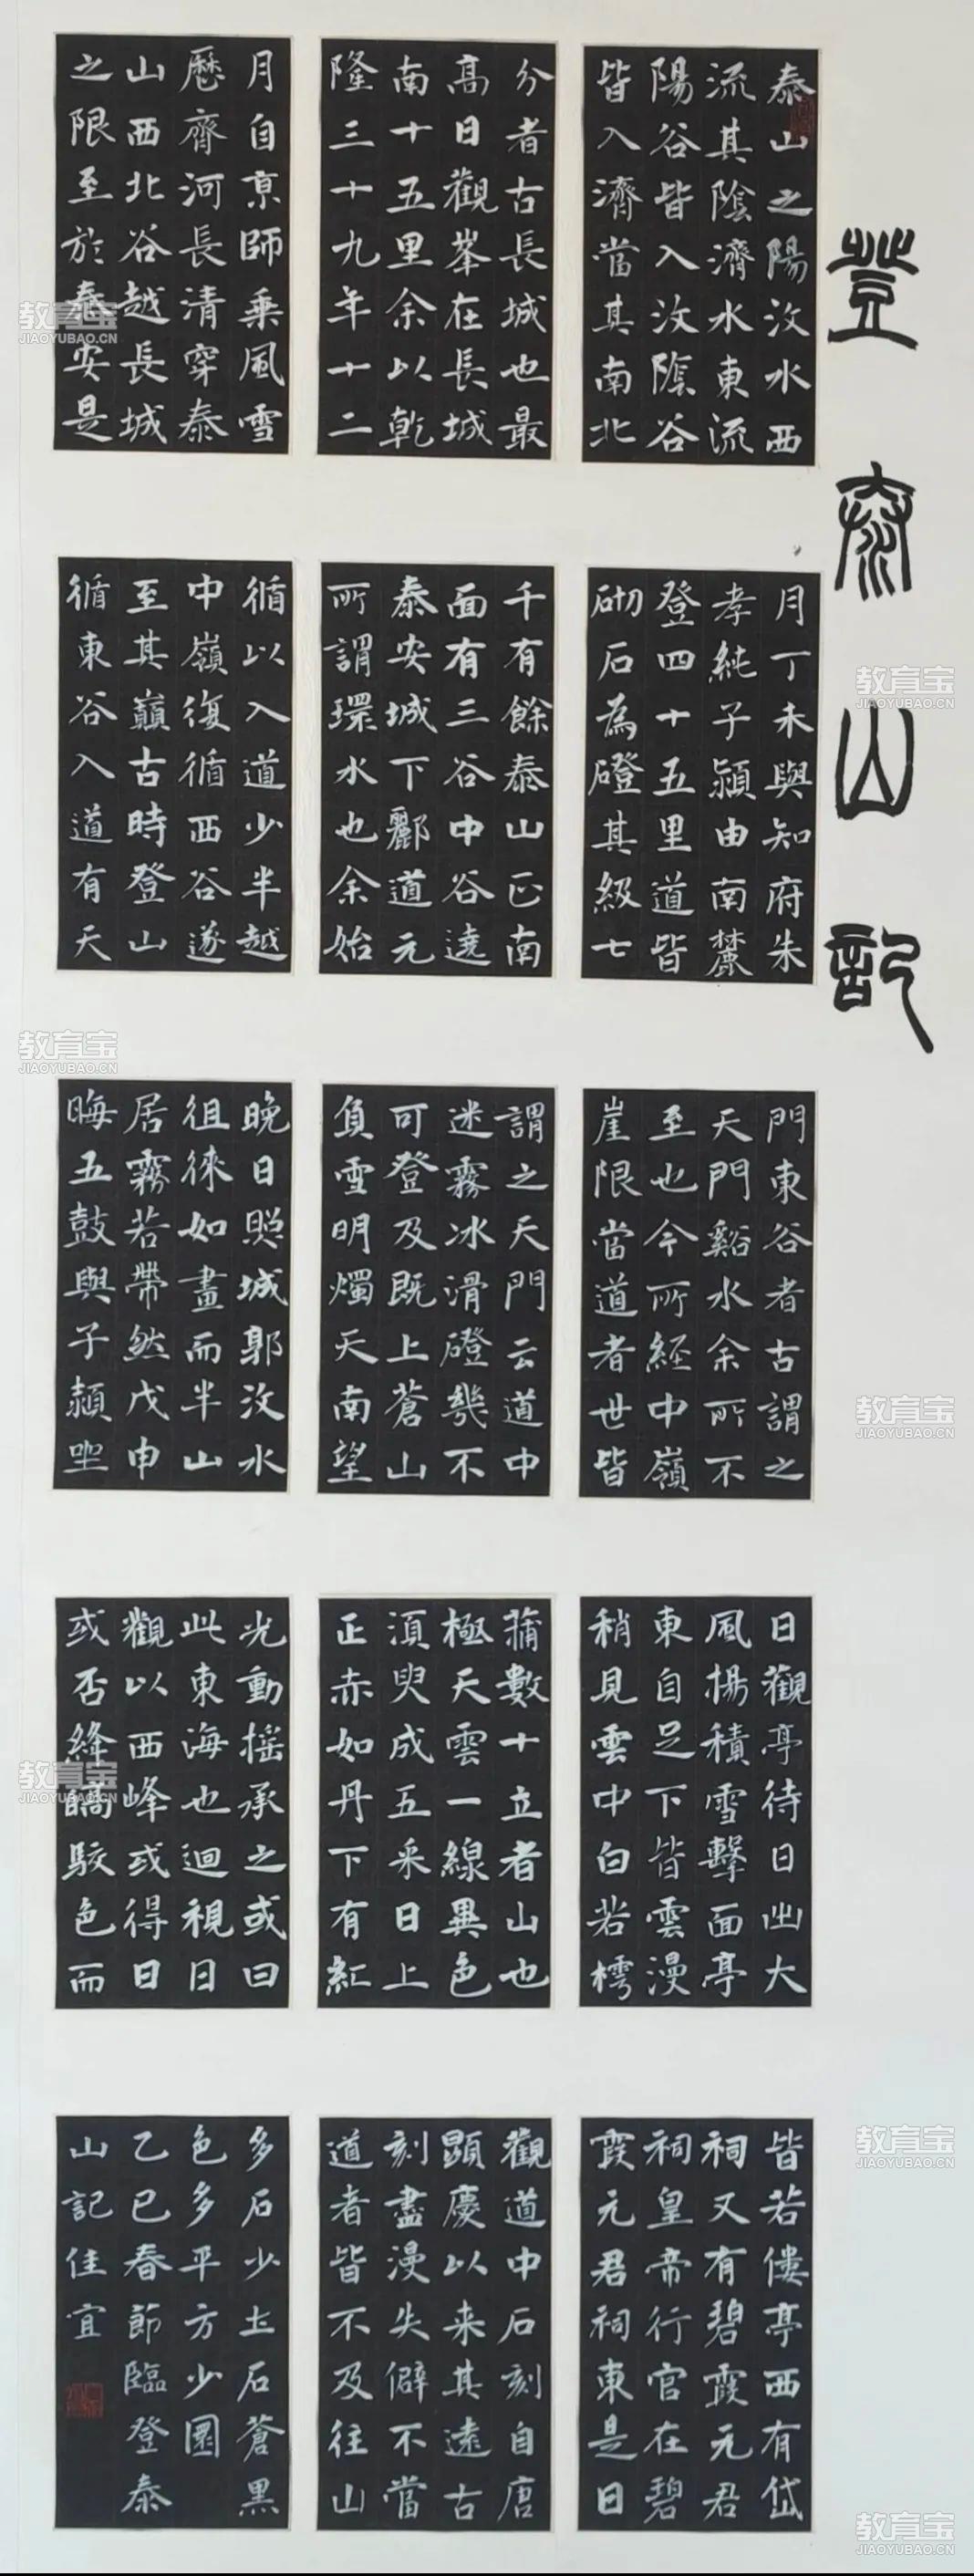 登泰山記
泰山之陽汶水西
流其陰濟水東流
陽谷皆入汶陰谷
皆入濟當其南北
分者古長城也最
高日觀峯在長城
南十五里余以乾
隆三十九年十二
月自京師乗風雪
歷齊河長清穿泰
山西北谷越長城
之限至於泰安是
月丁未與知府朱
孝純子潁由南麓
登四十五里道皆
砌石為磴其級七
千有餘泰山正南
面有三谷中谷遶
泰安城下酈道元
所謂環水也余始
循以入道少半越
中嶺復循西谷遂
至其巔古時登山
循東谷入道有天
門東谷者古謂之
天門谿水余所不
至也今所經中嶺
崖限當道者世皆
謂之天門云道中
迷霧冰滑磴幾不
可登及既上蒼山
負雪明燭天南望
晚日照城郭汶水
徂徠如畫而半山
居霧若帶然戊申
晦五鼓與子潁坐
日觀亭待日出大
風揚積雪擊面亭
東自足下皆雲漫
稍見雲中白若樗
蒱數十立者山也
極天雲一線異色
須臾成五采日上
正赤如丹下有紅
光動摇承之或曰
此東海也迴視日
觀以西峰或得日
或否絳皜駁色而
皆若僂亭西有岱
祠又有碧霞元君
祠皇帝行宫在碧
霞元君祠東是日
觀道中石刻自唐
顯慶以来其遠古
刻盡漫失僻不當
道者皆不及往山
多石少土石蒼黑
色多平方少圜
乙巳春節臨登泰
山記佳宜
教育宝
JIAOYUBAO.CN
教育宝
JIAOYUBAO.CN
教育宝
JIAOYUBAO.CN
教育宝
JIAOYUBAO.CN
教育宝
JIAOYUBAO.CN
教育宝
JIAOYUBAO.CN
教育宝
JIAOYUBAO.CN